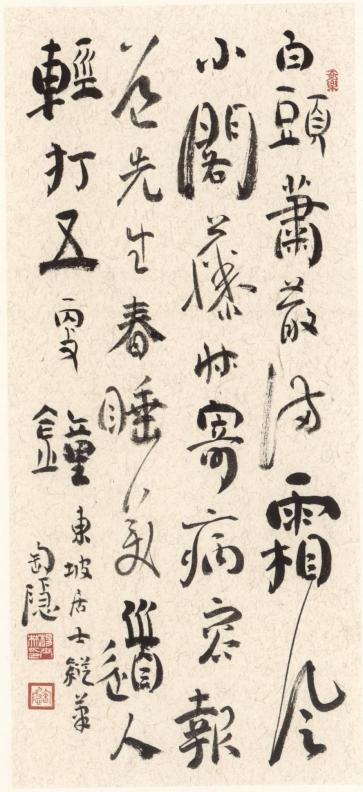 白頭蕭散滿霜風
小閣藤牀寄病容報
道先生春睡美道人
輕打五更鐘
東坡居士縱筆
匋隱